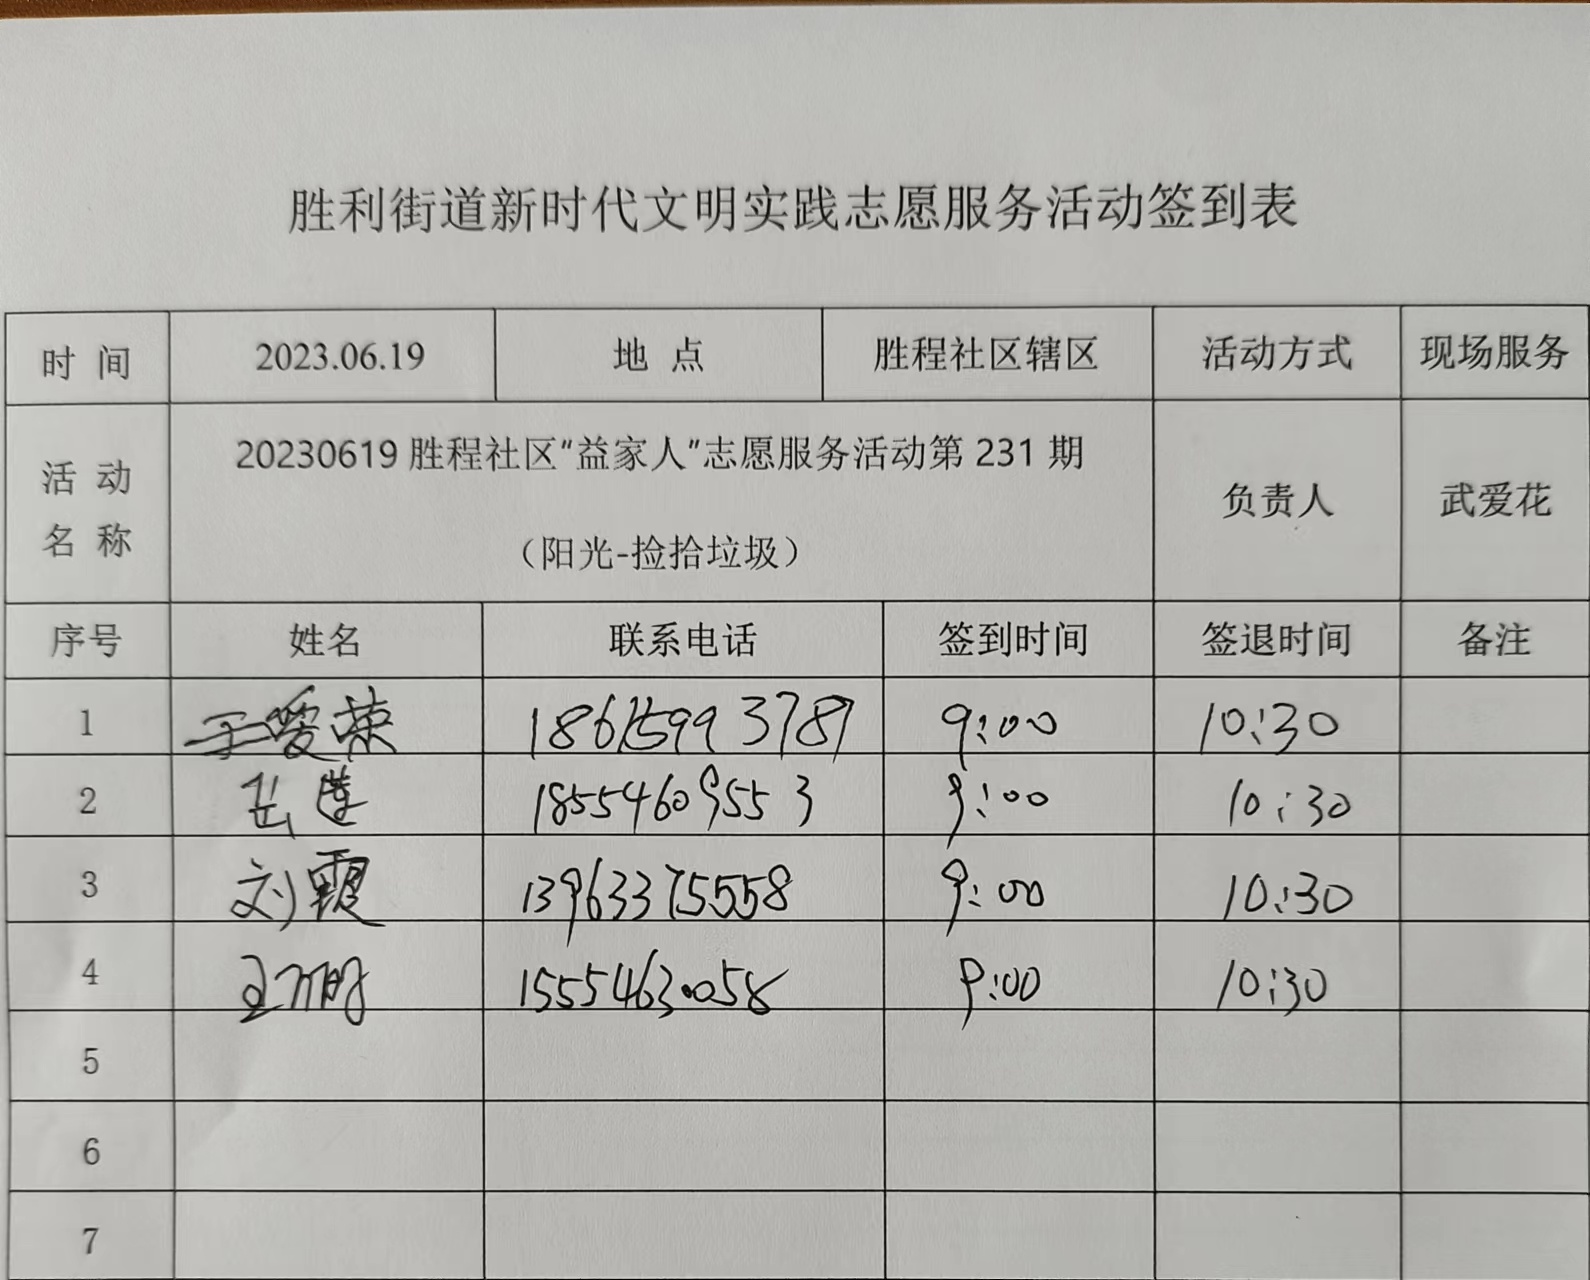 胜利街道新时代文明实践志愿服务活动签到表
时 间 2023.06.19 地 点 胜程社区辖区 活动方式 现场服务
活 动 名 称 20230619 胜程社区“益家人”志愿服务活动第 231 期 （阳光-捡拾垃圾） 负责人 武爱花
序号 姓名 联系电话 签到时间 签退时间 备注
1 王爱荣 9:00 10:30
2 岳莲 18554609553 9:00 10:30
3 刘霞 13963375558 9:00 10:30
4 15554630058 9:00 10:30
5
6
7